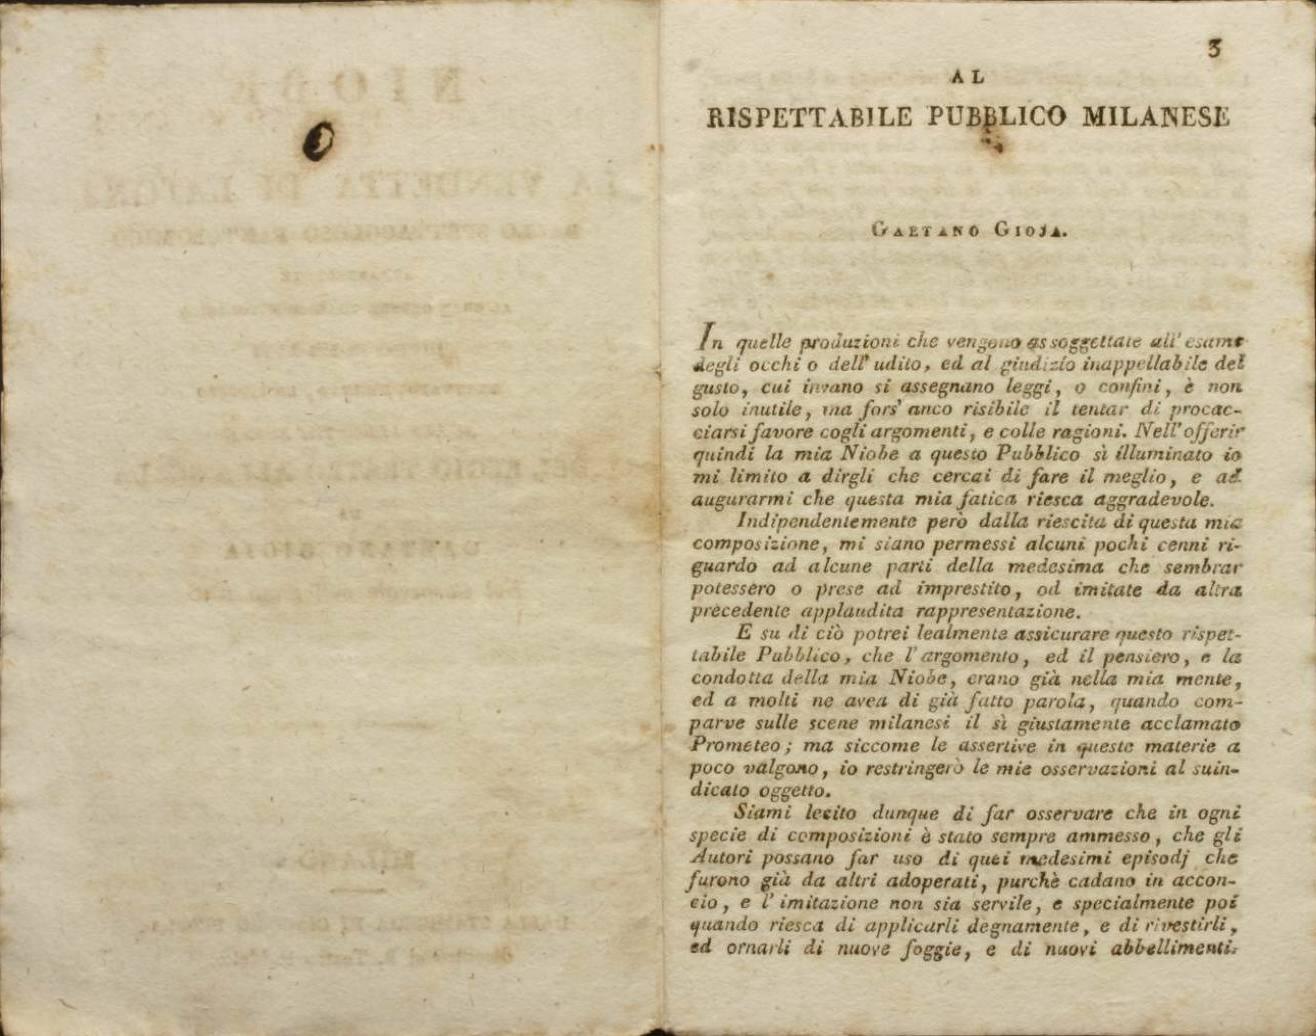 3
AL
RISPETTABILE PUBBLICO MILANESE
GAETANO GIOJA.
In quelle produzioni che vengono assoggettate all' esame
degli occhi o dell' udito, ed al giudizio inappellabile del
gusto, cui invano si assegnano leggi, o confini, è non
solo inutile, ma fors' anco risibile il tentar di procac-
ciarsi favore cogli argomenti, e colle ragioni. Nell' offerir
quindi la mia Niobe a questo Pubblico sì illuminato io
mi limito a dirgli che cercai di fare il meglio, e ad
augurarmi che questa mia fatica riesca aggradevole.
Indipendentemente però dalla riescita di questa mia
composizione, mi siano permessi alcuni pochi cenni ri-
guardo ad alcune parti della medesima che sembrar
potessero o prese ad imprestito, od imitate da altra
precedente applaudita rappresentazione.
E su di ciò potrei lealmente assicurare questo rispet-
tabile Pubblico, che l' argomento, ed il pensiero, e la
condotta della mia Niobe, erano già nella mia mente,
ed a molti ne avea di già fatto parola, quando com-
parve sulle scene milanesi il sì giustamente acclamato
Prometeo; ma siccome le assertive in queste materie a
poco valgono, io restringerò le mie osservazioni al suin-
dicato oggetto.
Siami lecito dunque di far osservare che in ogni
specie di composizioni è stato sempre ammesso, che gli
Autori possano far uso di quei medesimi episodj che
furono già da altri adoperati, purchè cadano in accon-
cio, e l' imitazione non sia servile, e specialmente poi
quando riesca di applicarli degnamente, e di rivestirli,
ed ornarli di nuove foggie, e di nuovi abbellimenti.